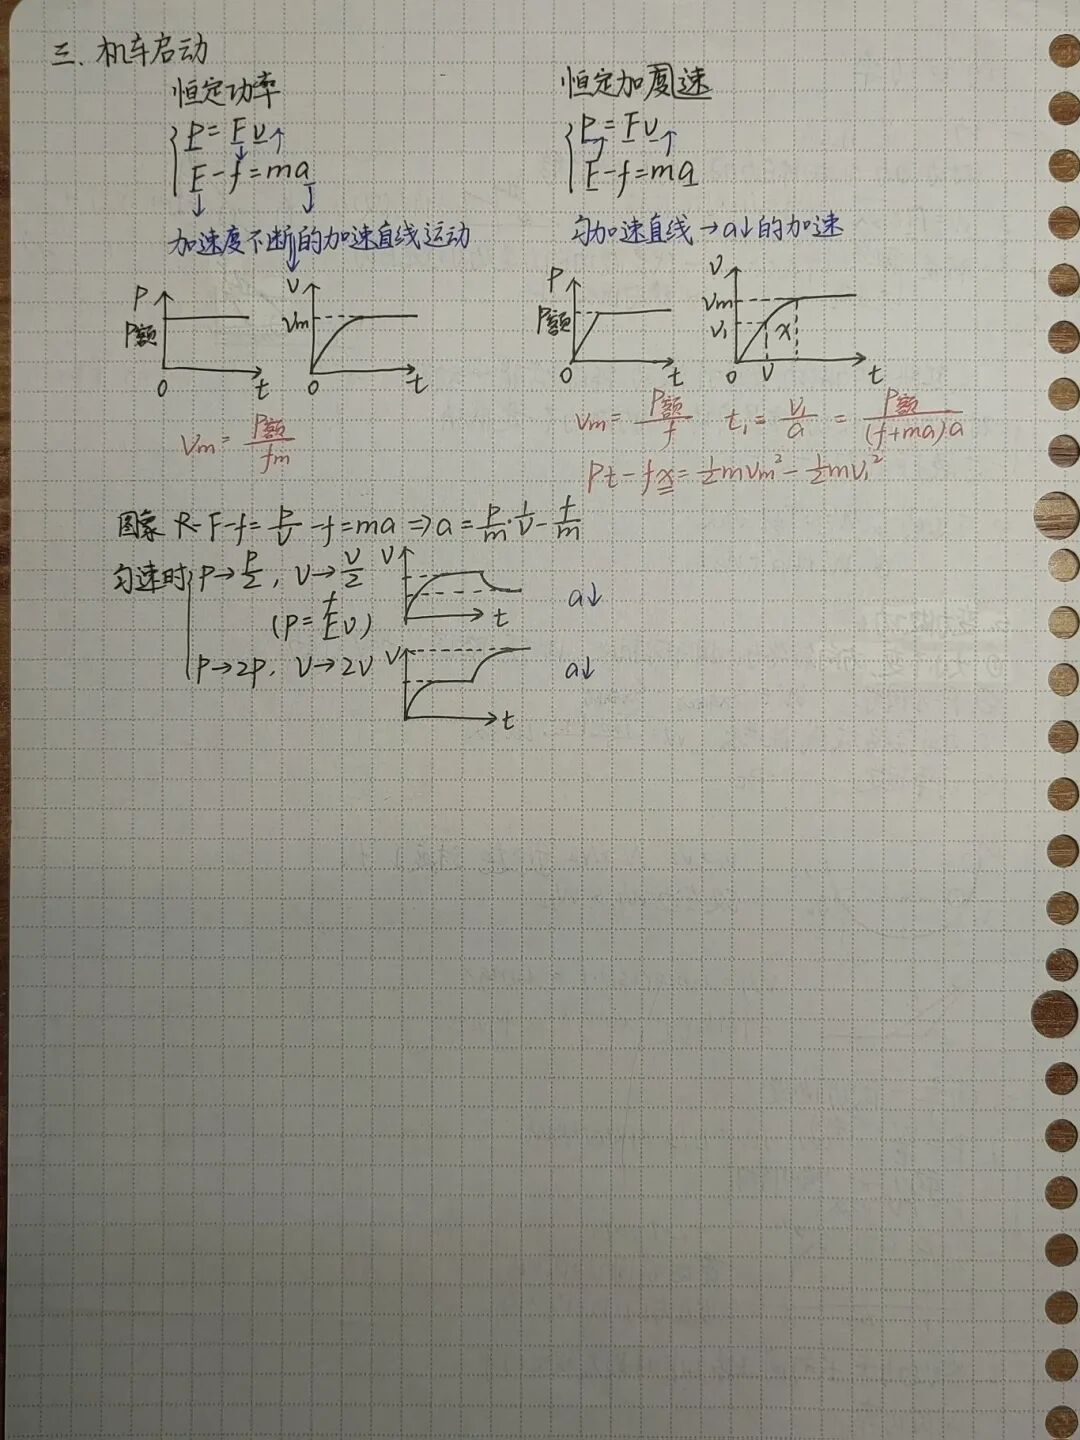 三、机车启动
恒定功率
P=Fv↑
F-f=ma
加速度不断↓的加速直线运动
P
P额
0
t
v
vm
0
t
vm=P额/fm
恒定加度速
P=Fv↑
F-f=ma
匀加速直线→a↓的加速
P
P额
0
t
v
vm
v₁
x
0
v
t
vm=P额/f t₁=v₁/a=P额/(f+ma)a
Pt-fx=½mvm²-½mv₁²
图象 F-f=P/v-f=ma⇒a=P/m·1/v-f/m
匀速时 P→P/2, v→v/2
(P=Fv)
f
v
t
a↓
P→2P, v→2v
v
t
a↓